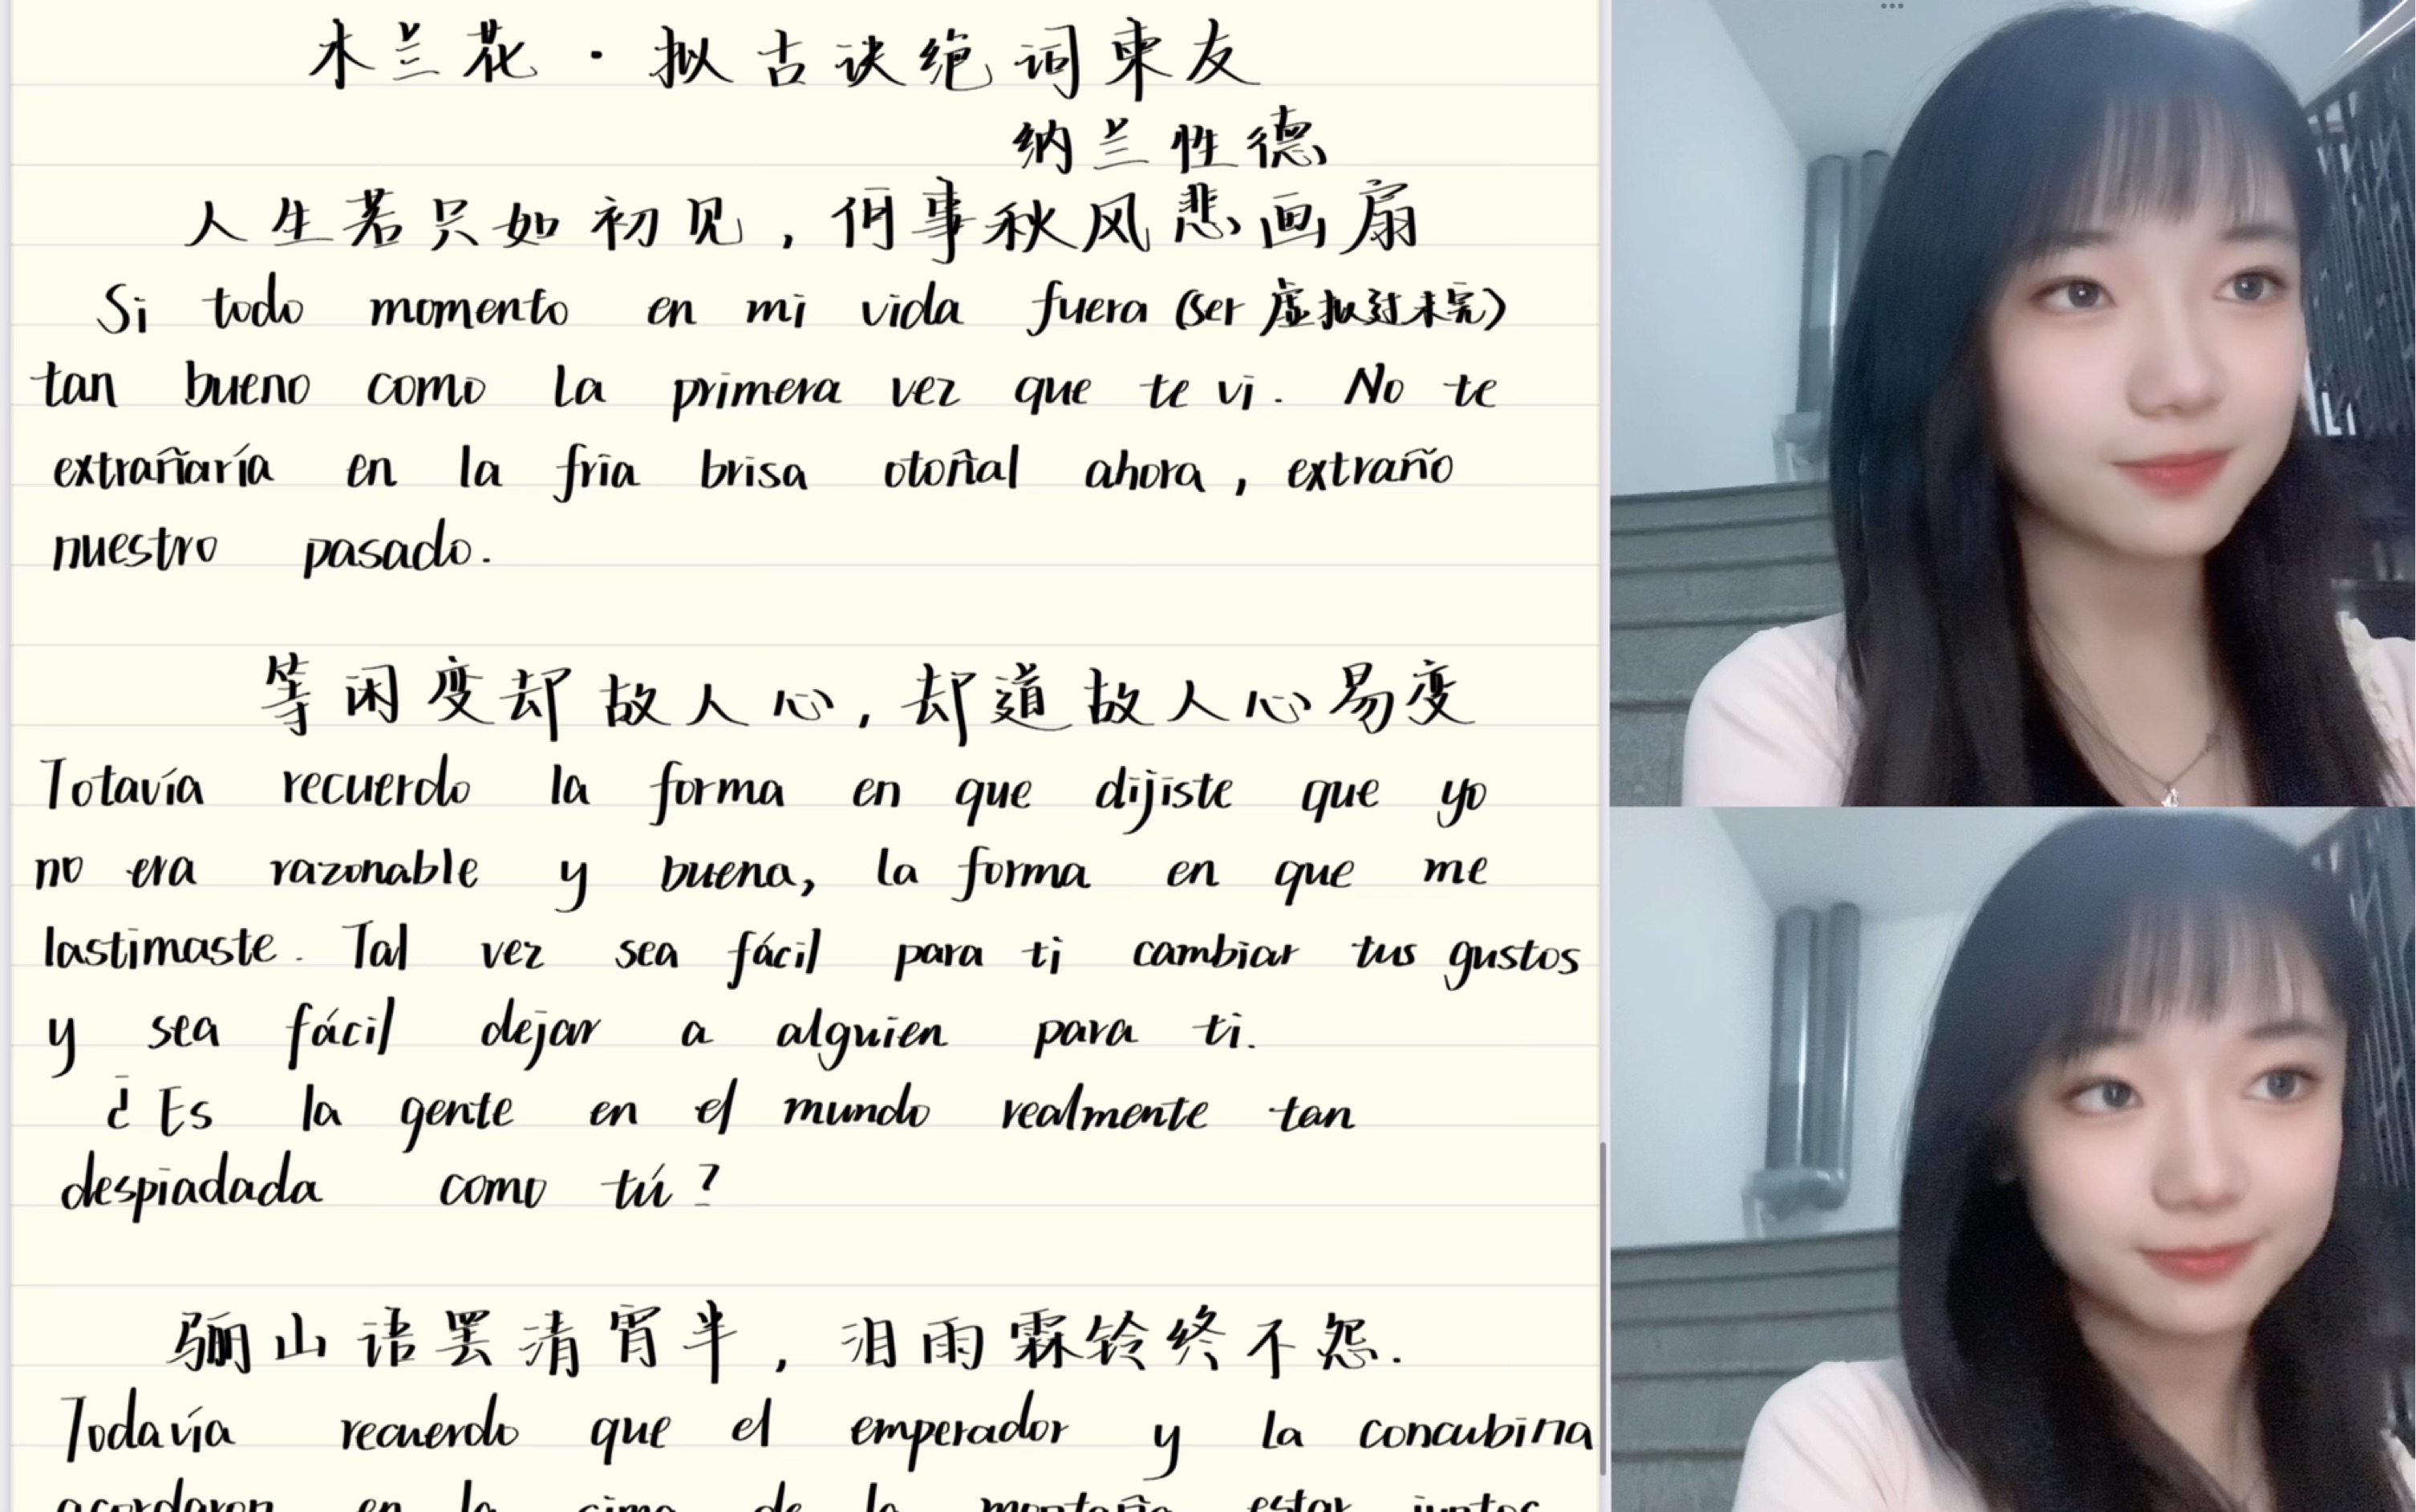 木兰花·拟古诀绝词柬友
纳兰性德
人生若只如初见，何事秋风悲画扇
Si todo momento en mi vida fuera (ser 虚拟过未完)
tan bueno como la primera vez que te vi. No te
extrañaría en la fría brisa otoñal ahora, extraño
nuestro pasado.
等闲变却故人心，却道故人心易变
Totavía recuerdo la forma en que dijiste que yo
no era razonable y buena, la forma en que me
lastimaste. Tal vez sea fácil para ti cambiar tus gustos
y sea fácil dejar a alguien para ti.
¿Es la gente en el mundo realmente tan
despiadada como tú?
骊山语罢清宵半，泪雨霖铃终不怨.
Todavía recuerdo que el emperador y la concubina
acordaron en la cima de la montaña estar juntos